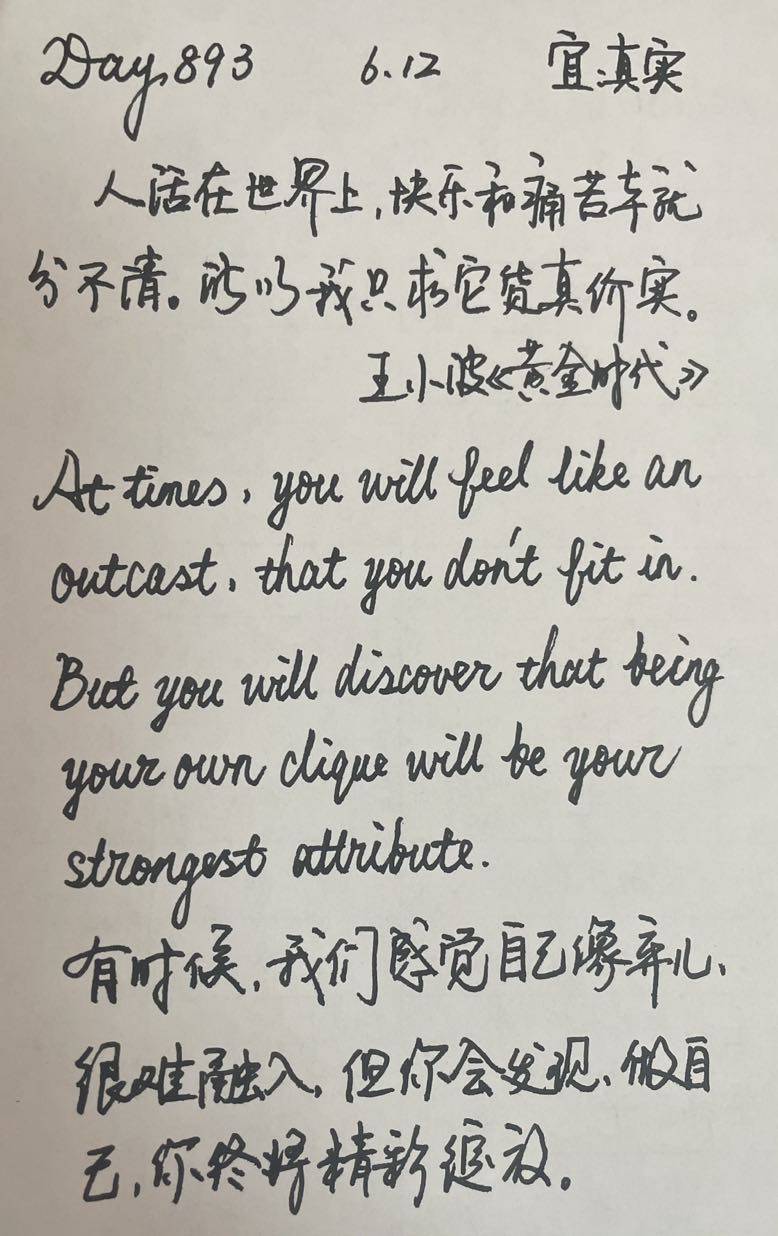 Day 893 6.12 宜:真实
人活在世界上,快乐和痛苦本就
分不清。所以我只求它货真价实。
王小波《黄金时代》
At times, you will feel like an
outcast, that you don't fit in.
But you will discover that being
your own clique will be your
strongest attribute.
有时候,我们感觉自己像弃儿、
很难融入,但你会发现、做自
己,你终将精彩绽放。